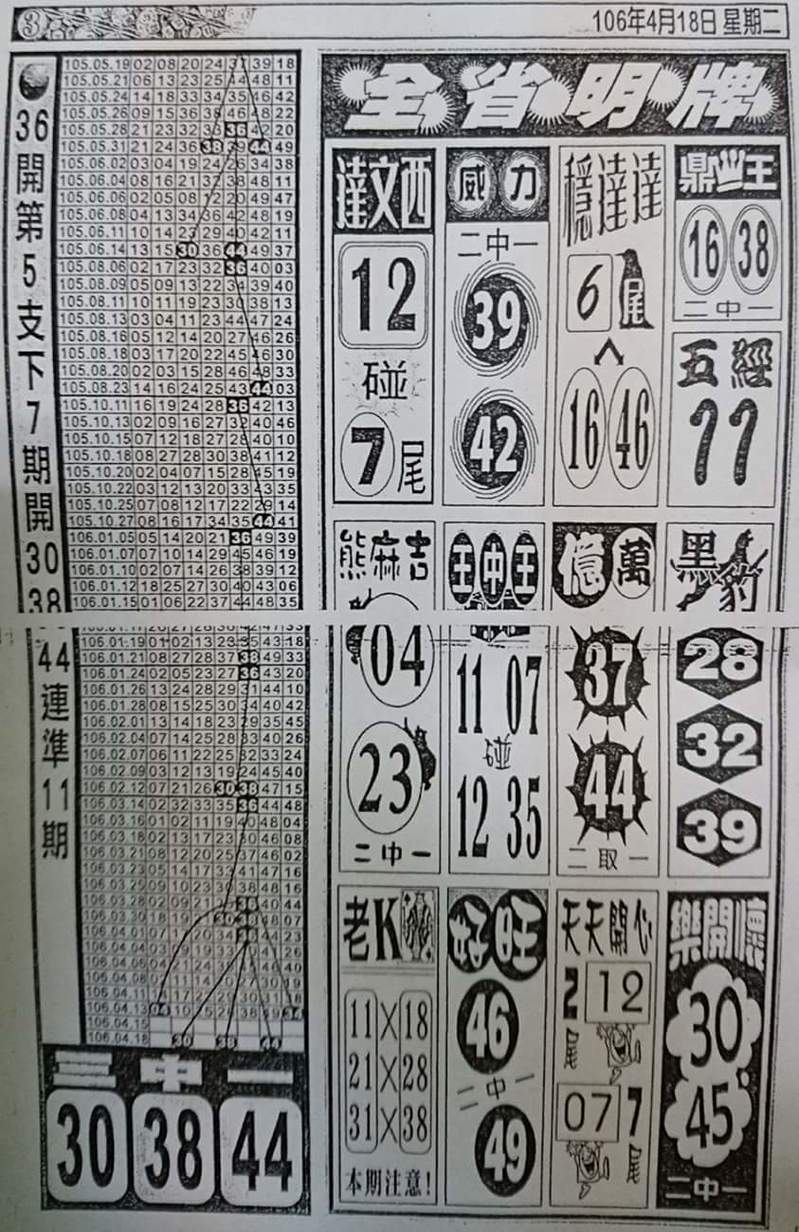 3
106年4月18日 星期二
36開第5支下7期開30 38 44連準11期
105.05.19 02 08 20 24 37 39 18
105.05.21 06 13 23 25 44 48 11
105.05.24 14 18 33 34 35 46 42
105.05.26 09 15 36 38 46 48 22
105.05.28 21 23 32 33 36 42 20
105.05.31 21 24 36 38 39 44 49
105.06.02 03 04 19 24 26 34 38
105.06.04 08 16 21 37 38 48 11
105.06.06 02 05 08 12 20 49 47
105.06.08 04 13 34 36 42 48 19
105.06.11 10 14 23 29 40 42 11
105.06.14 13 15 30 36 44 49 37
105.08.06 02 17 23 32 36 40 03
105.08.09 05 09 13 22 34 39 40
105.08.11 10 11 19 23 30 38 13
105.08.13 03 04 11 23 44 47 24
105.08.16 05 12 14 20 27 46 26
105.08.18 03 17 20 22 45 46 30
105.08.20 02 03 15 28 46 48 33
105.08.23 14 16 24 25 43 44 03
105.10.11 16 19 24 28 36 42 13
105.10.13 02 09 16 27 32 40 46
105.10.15 07 12 18 27 28 40 10
105.10.18 08 27 28 30 38 41 12
105.10.20 02 04 07 15 28 45 19
105.10.22 03 12 13 20 33 43 35
105.10.25 07 08 12 17 22 29 14
105.10.27 08 16 17 34 35 44 41
106.01.05 05 14 20 21 36 49 39
106.01.07 07 10 14 29 45 46 19
106.01.10 02 07 14 26 38 39 12
106.01.12 18 25 27 30 40 43 06
106.01.15 01 06 22 37 44 48 35
106.01.19 01 02 13 23 35 43 18
106.01.21 08 27 28 37 38 49 33
106.01.24 02 05 23 27 36 43 20
106.01.26 13 24 28 29 31 44 10
106.01.28 08 15 25 30 34 40 42
106.02.01 13 14 18 23 29 35 45
106.02.04 07 14 25 28 33 40 26
106.02.07 06 11 22 25 32 33 24
106.02.09 03 12 13 19 24 45 40
106.02.12 07 21 26 30 38 47 15
106.03.14 02 32 33 35 36 44 48
106.03.16 01 02 11 19 40 48 04
106.03.18 02 13 17 23 30 46 08
106.03.21 08 12 20 25 37 46 02
106.03.23
106.03.25
106.03.28
106.03.30
106.04.01
106.04.11
106.04.13 04
106.04.15
106.04.18 30 38 44
三中一
30 38 44
全省明牌
達文西
12
碰
7尾
威力
二中一
39
42
穩達達
6尾
16 46
鼎王
16 38
二中一
五經
77
熊麻吉
04
23
二中一
王中王
11 07
碰
12 35
億萬
37
44
二取一
黑豹
28
32
39
老K
11X18
21X28
31X38
本期注意!
好旺
46
二中一
49
天天開心
2尾 12
07 7尾
樂開懷
30
45
二中一